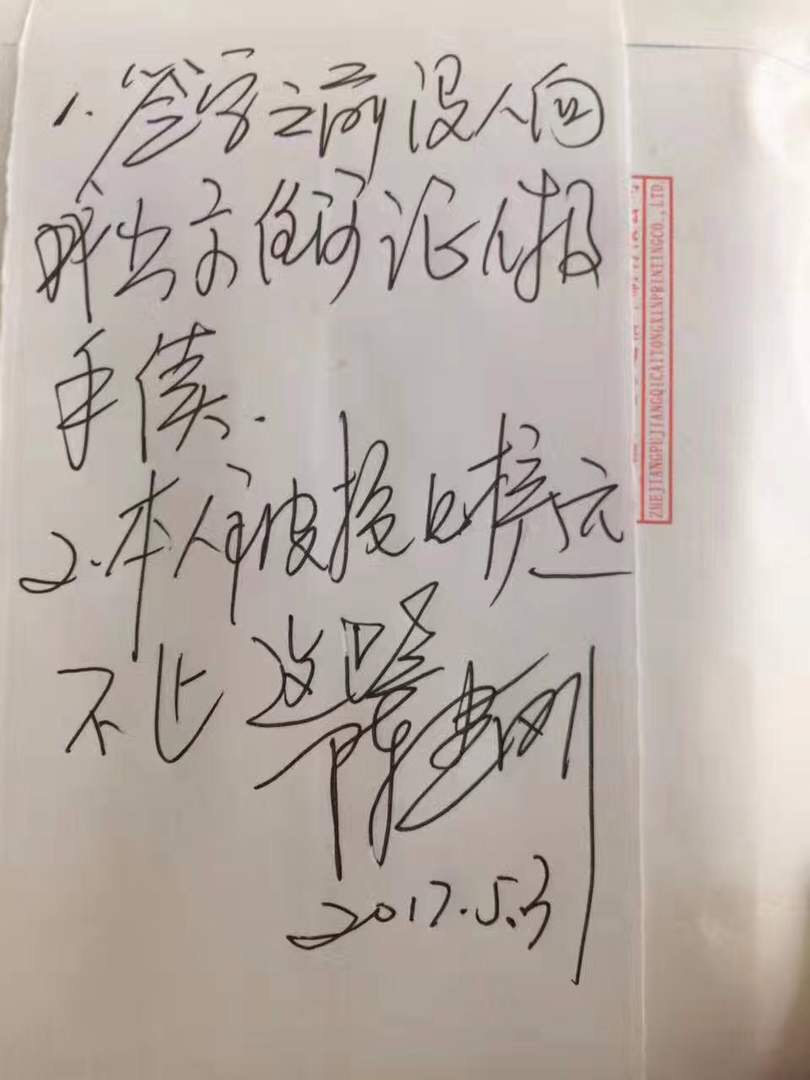 1.签字之前没人向
我出示任何证件及
手续.
2.本人家被损坏远
不止这些
陈建刚
2017.5.3
ZHEJIANGPUJIANGQICAITONGXINPRINTINGCO.,LTD